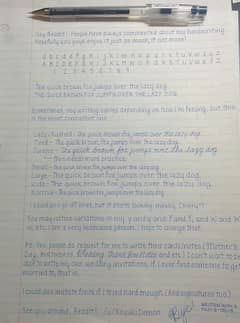 Hey Reddit! People have always commented about my handwriting
Hopefully you guys enjoy it just as much, if not more!
a b c d e f g h i j k l m n o p q r s t u v w x y z
A B C D E F G H I J K L M N O P Q R S T U V W X Y Z
1 2 3 4 5 6 7 8 9
The quick brown fox jumps over the lazy dog.
THE QUICK BROWN FOX JUMPS OVER THE LAZY DOG.
Sometimes, my writing varies depending on how I'm feeling, but this
is the most consistent one.
Lazy/Rushed - The quick brown fox jumps over the lazy dog.
Tired - The quick brown fox jumps over the lazy dog.
Cursive - The quick brown fox jumps over the lazy dog
this needs more practice.
Small - The quick brown fox jumps over the lazy dog.
Large - The quick brown fox jumps over the lazy dog.
Wide - The quick brown fox jumps over the lazy dog.
Narrow - The quick brown fox jumps over the lazy dog.
I could on and off lines, but it starts looking messy.
You may notice variations in my y and y and f and f, and
etc. I am a very indecisive person, I hope to change that.
PS: Yes, people do request for me to write their cards/notes (Mother's
Day, birthdays, Wedding, Thank you notes and etc.) I can't wait to
start writing our wedding invitations, if I ever find someone to get
married to, that is.
I could also imitate fonts if I tried hard enough. (And signatures too)
See you around, Reddit!